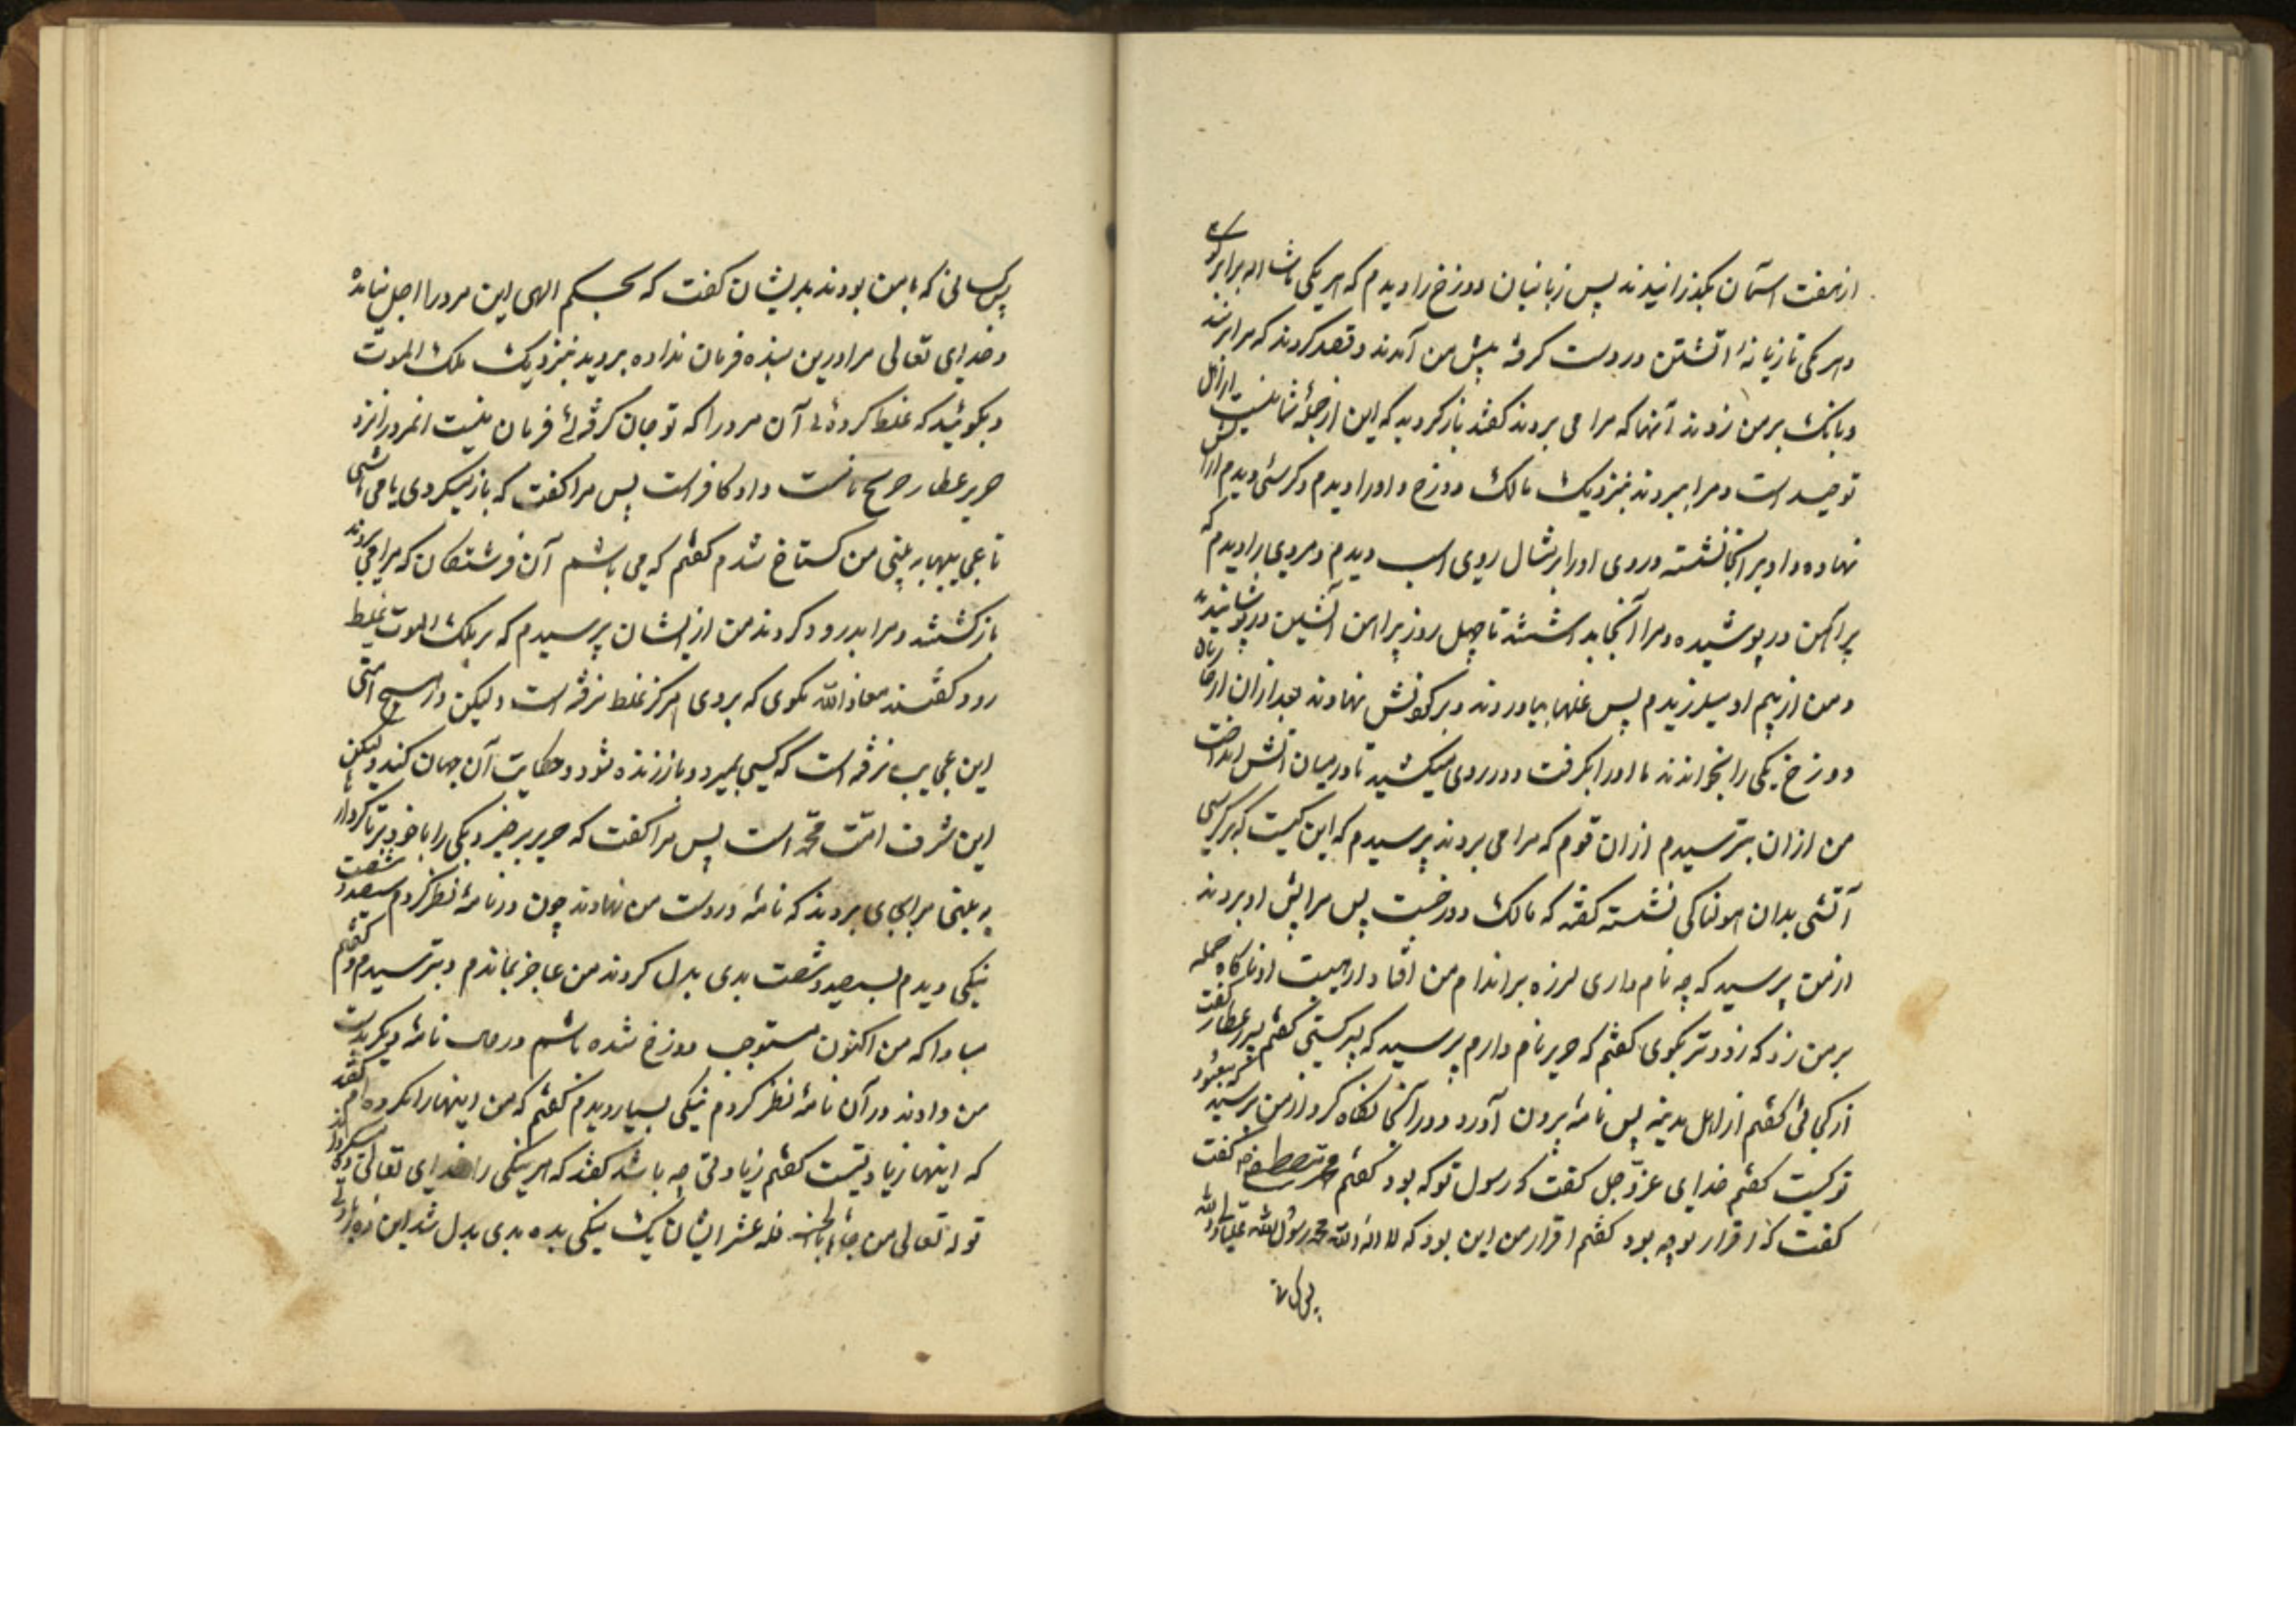 از هفت آسمان بگذرانیدند پس زبانیان دوزخ را دیدم که هر یکی باشد برابر کوهی
و هر یکی تازیانهٔ آتشین در دست گرفته پیش من آمدند و قصد کردند که مرا بزنند
و بانک بر من زدند آنها که مرا می بردند گفتند باز گردید که این از جملهٔ شما نیست از اهل
توحید است و مرا ببردند بنزدیک مالک دوزخ و او را دیدم و کرسئی دیدم از آتش
نهاده و او بر آنجا نشسته و روی او را بر مثال روی اسب دیدم و مردی را دیدم که
پراهن در پوشیده و مرا آنجا بداشتند تا چهل روز پراهن آتشین در پوشانیدند
و من از بیم او میلرزیدم پس غلها بیاوردند و بر گردنش نهادند بعد از آن
دوزخ یکی را بخواندند تا او را بگرفت و در روی میکشید تا در میان آتش انداخت
من از آن بترسیدم از آن قوم که مرا می بردند پرسیدم که این کیست که بر کرسی
آتشی بدان هولناکی نشسته گفتند که مالک دوزخست پس مرا پیش او بردند
از من پرسید که چه نام داری لرزه بر اندام من افتاد از هیبت او ناکاه حمله
بر من زد که زودتر بکوی گفتم که حریر نام دارم پرسید که پسر کیستی گفتم پسر عطار گفت
از کجائی گفتم از اهل مدینه پس نامهٔ برون آورد و در آنجا نگاه کرد از من پرسید که معبود
تو کیست گفتم خدای عزّ و جل گفت که رسول تو که بود گفتم محمد مصطفی گفت
گفت که اقرار تو چه بود گفتم اقرار من این بود که لا اله الا الله محمد رسول الله
پس کسانی که با من بودند بدیشان گفت که بحکم الهی این مرد را اجل نیامده
و خدای تعالی مرا درین بنده فرمان نداده بروید بنزدیک ملک الموت
و بگوئید که غلط کردهٔ آن مرد را که تو جان گرفتهٔ فرمان نیست آنمرد را نزد
حریر عطار و او کافر است پس مرا گفت که باز میگردی یا می باشی
تا عجایبها به بینی من گستاخ شدم گفتم که می باشم آن فرشتگان که مرا می بردند
باز گشتند و مرا بدرود کردند من از ایشان پرسیدم که بر ملک الموت غلط
رود گفتند معاذ الله نگوی که بروی هرگز غلط نرفته است و لیکن در هیچ امتی
این عجایب نرفته است که کسی بمیرد و باز زنده شود و حکایت آن جهان کند و لیکن
این شرف امّت محمّد است پس مرا گفت که حریر برخیز و یکی را با خود ببر تا کردار
به بینی مرا بجای بردند که نامهٔ در دست من نهادند چون در نامهٔ نظر کردم سیصد و شصت
نیکی دیدم بسیصد و شصت بدی بدل کردند من عاجز بماندم و بترسیدم و گفتم
مبادا که من اکنون مستوجب دوزخ شده باشم در حال نامهٔ دیگر بدست
من دادند در آن نامهٔ نظر کردم نیکی بسیار دیدم گفتم که من اینها را نکرده ام گفتند
که اینها زیادتیست گفتم زیادتی چه باشد گفتند که هر نیکی را خدای تعالی
قوله تعالی من جاء بالحسنة فله عشر ایشان یک نیکی بده بدی بدل شد این